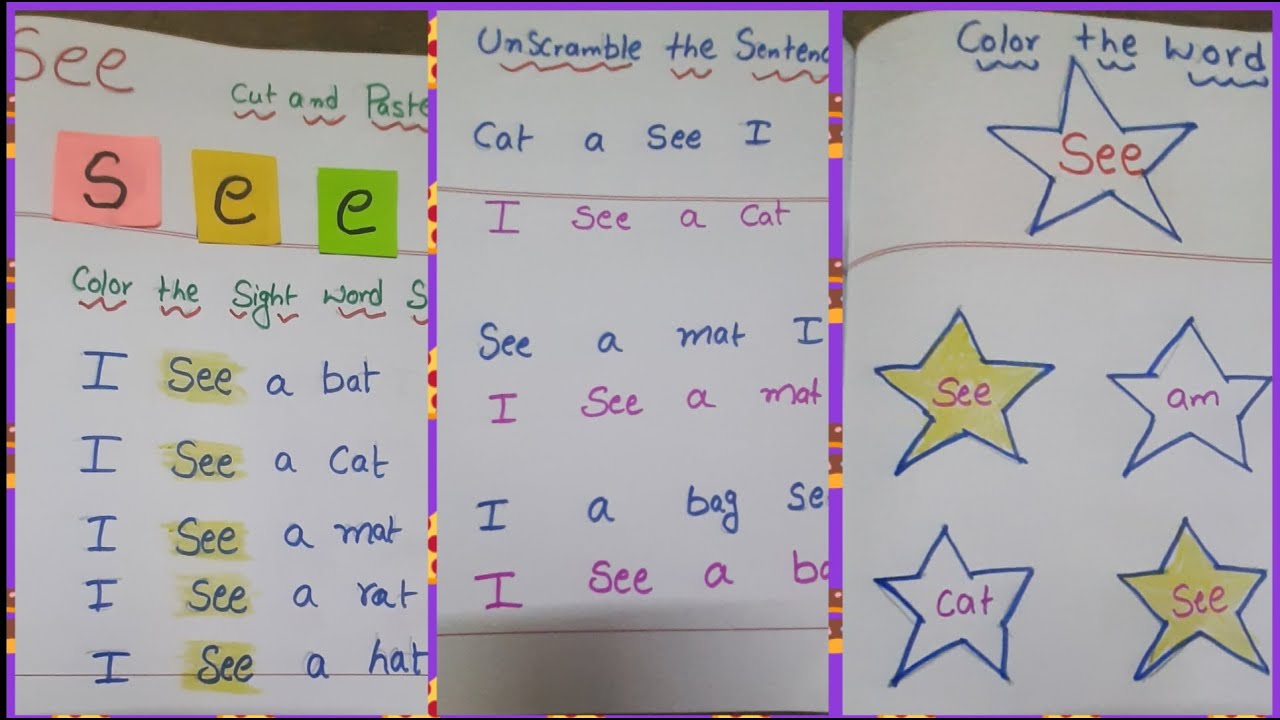 See
Cut and Paste
S e e
Color the Sight word S
I See a bat
I See a Cat
I See a mat
I See a rat
I See a hat
UnScramble the Sentenc
Cat a See I
I See a Cat
See a mat I
I See a mat
I a bag se
I See a ba
Color the word
See
See am
Cat See